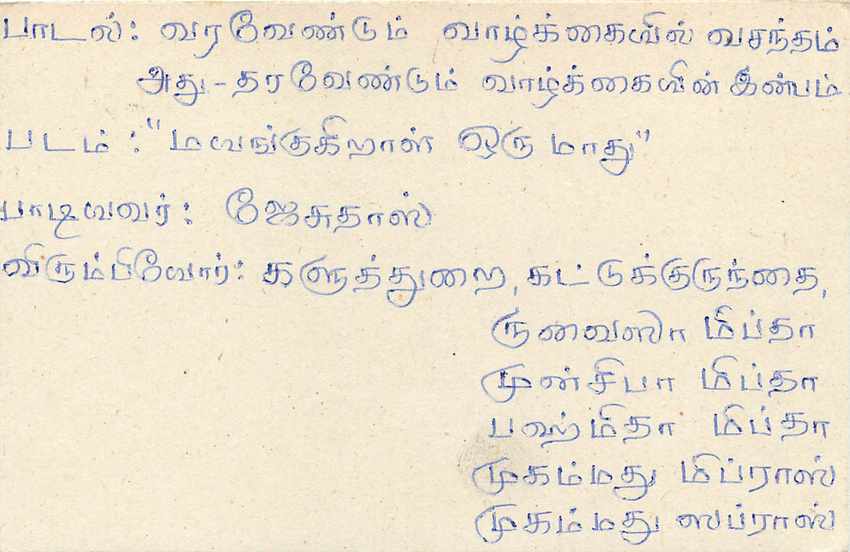 பாடல்: வரவேண்டும் வாழ்க்கையில் வசந்தம்
அது - தரவேண்டும் வாழ்க்கையின் இன்பம்
படம்: "மயங்குகிறாள் ஒரு மாது"
பாடியவர்: ஜேசுதாஸ்
விரும்பியோர்: களுத்துறை, கட்டுக்குருந்தை,
ருவைஸா மிப்தா
முன்சிபா மிப்தா
பஹ்மிதா மிப்தா
முகம்மது மிப்ராஸ்
முகம்மது ஸப்ராஸ்